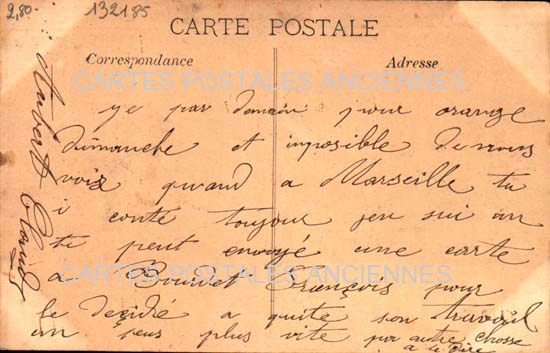 2,80-
132185
CARTE POSTALE
Correspondance
Adresse
CARTES POSTALES ANCIENNES
ye par demain pour orange
dimanche et imposible de nous
voir quand a Marseille tu
i conte toujour jen sui un
te peut envoyé une carte
CARTES POSTALES ANCIENNES
a Bourdet François pour
le decidré a quité son travail
un peus plus vite par autre chosse
a te dire
Aubert